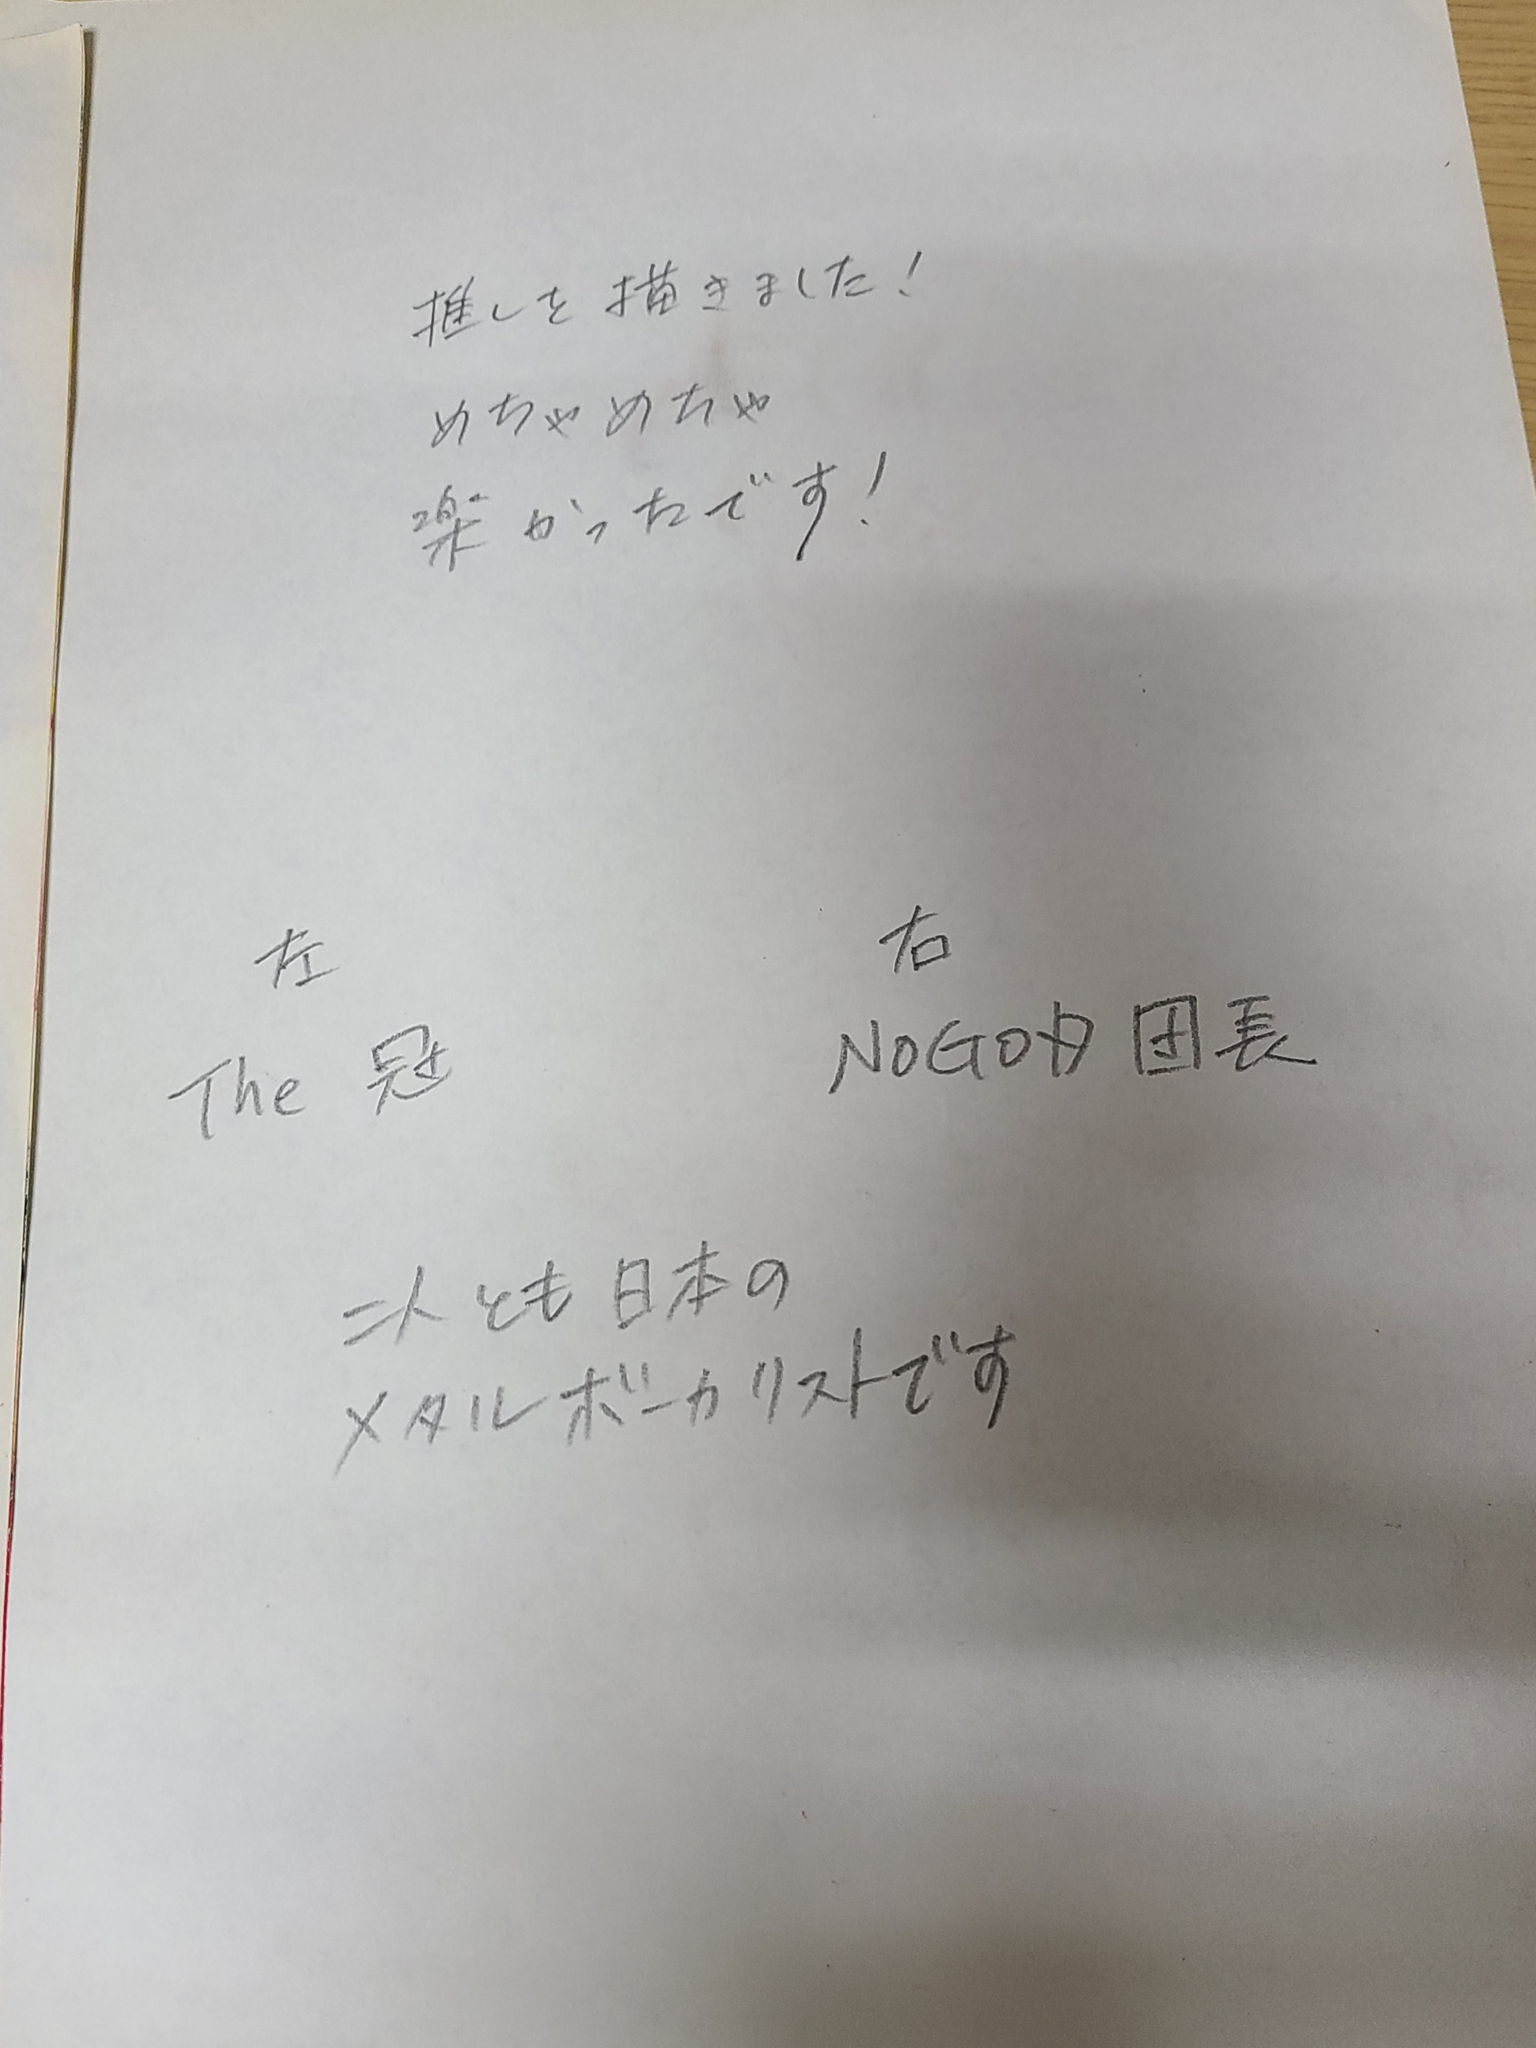 推しを描きました！
めちゃめちゃ
楽かったです！
左
The 冠
右
NoGoD 団長
二人とも日本の
メタルボーカリストです